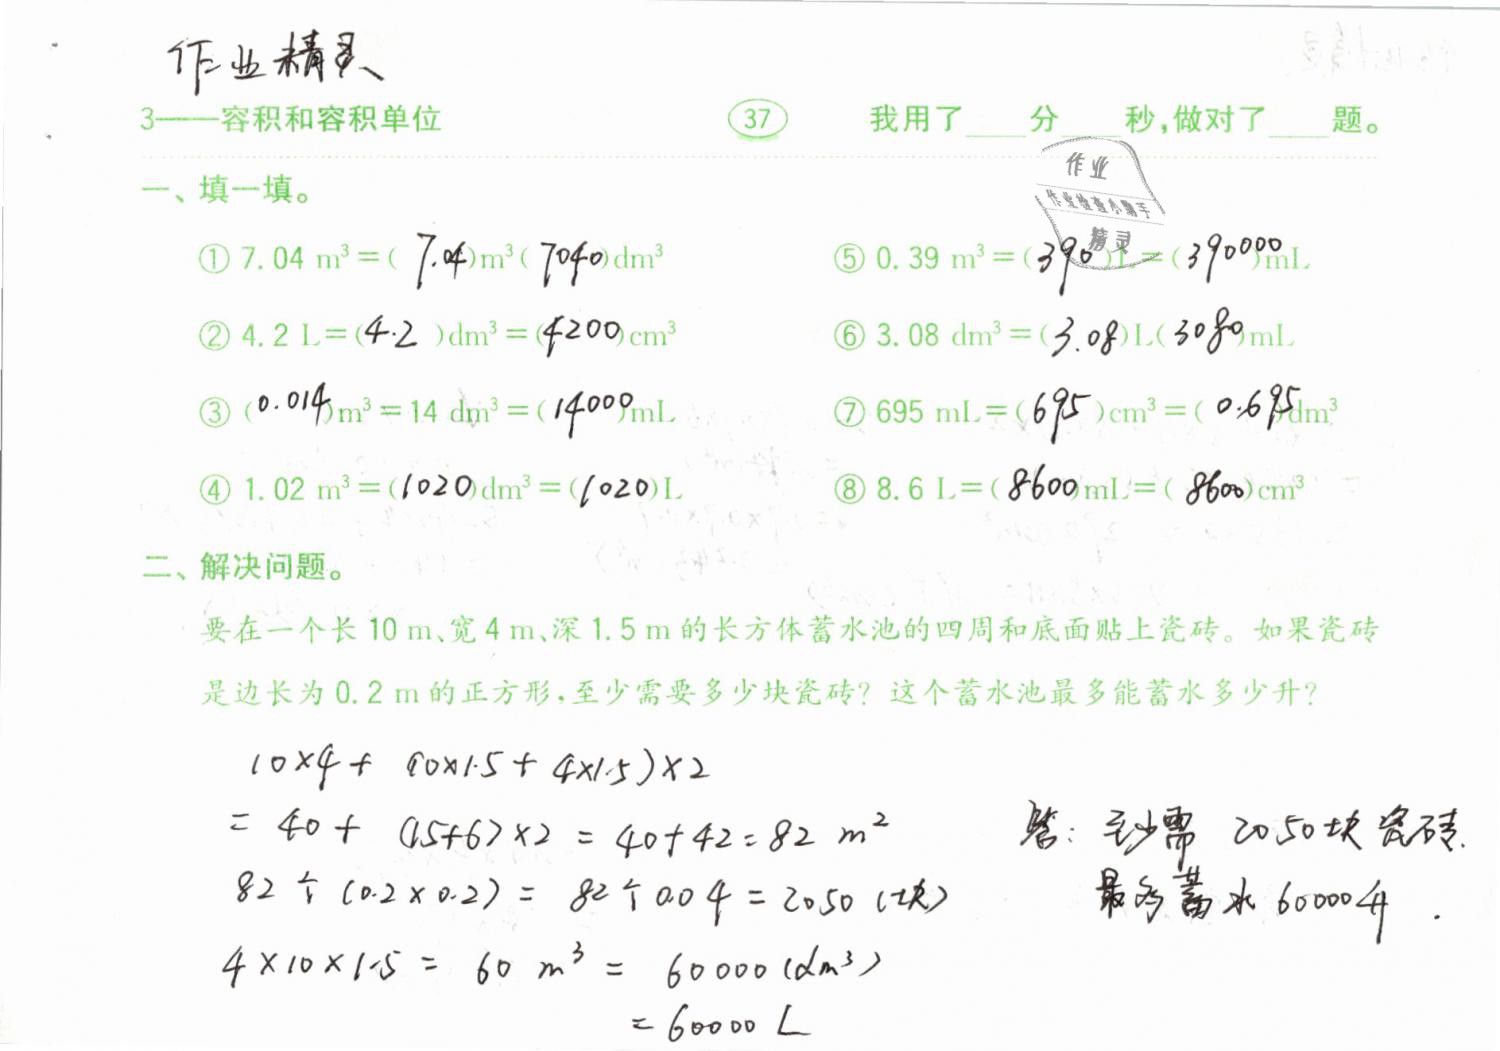 作业精灵
3——容积和容积单位 37 我用了____分____秒,做对了____题。
作业
作业检查小帮手
精灵
一、填一填。
① 7.04 m³=(7.04)m³(7040)dm³ ⑤ 0.39 m³=(390)L=(390000)mL
② 4.2 L=(4.2)dm³=(4200)cm³ ⑥ 3.08 dm³=(3.08)L(3080)mL
③ (0.014)m³=14 dm³=(14000)mL ⑦ 695 mL=(695)cm³=(0.695)dm³
④ 1.02 m³=(1020)dm³=(1020)L ⑧ 8.6 L=(8600)mL=(8600)cm³
二、解决问题。
要在一个长10 m、宽4 m、深1.5 m的长方体蓄水池的四周和底面贴上瓷砖。如果瓷砖
是边长为0.2 m的正方形,至少需要多少块瓷砖?这个蓄水池最多能蓄水多少升?
10×4+(10×1.5+4×1.5)×2
=40+(15+6)×2=40+42=82 m² 答:至少需2050块瓷砖.
82÷(0.2×0.2)=82÷0.04=2050(块) 最多蓄水60000升.
4×10×1.5=60 m³=60000(dm³)
=60000 L